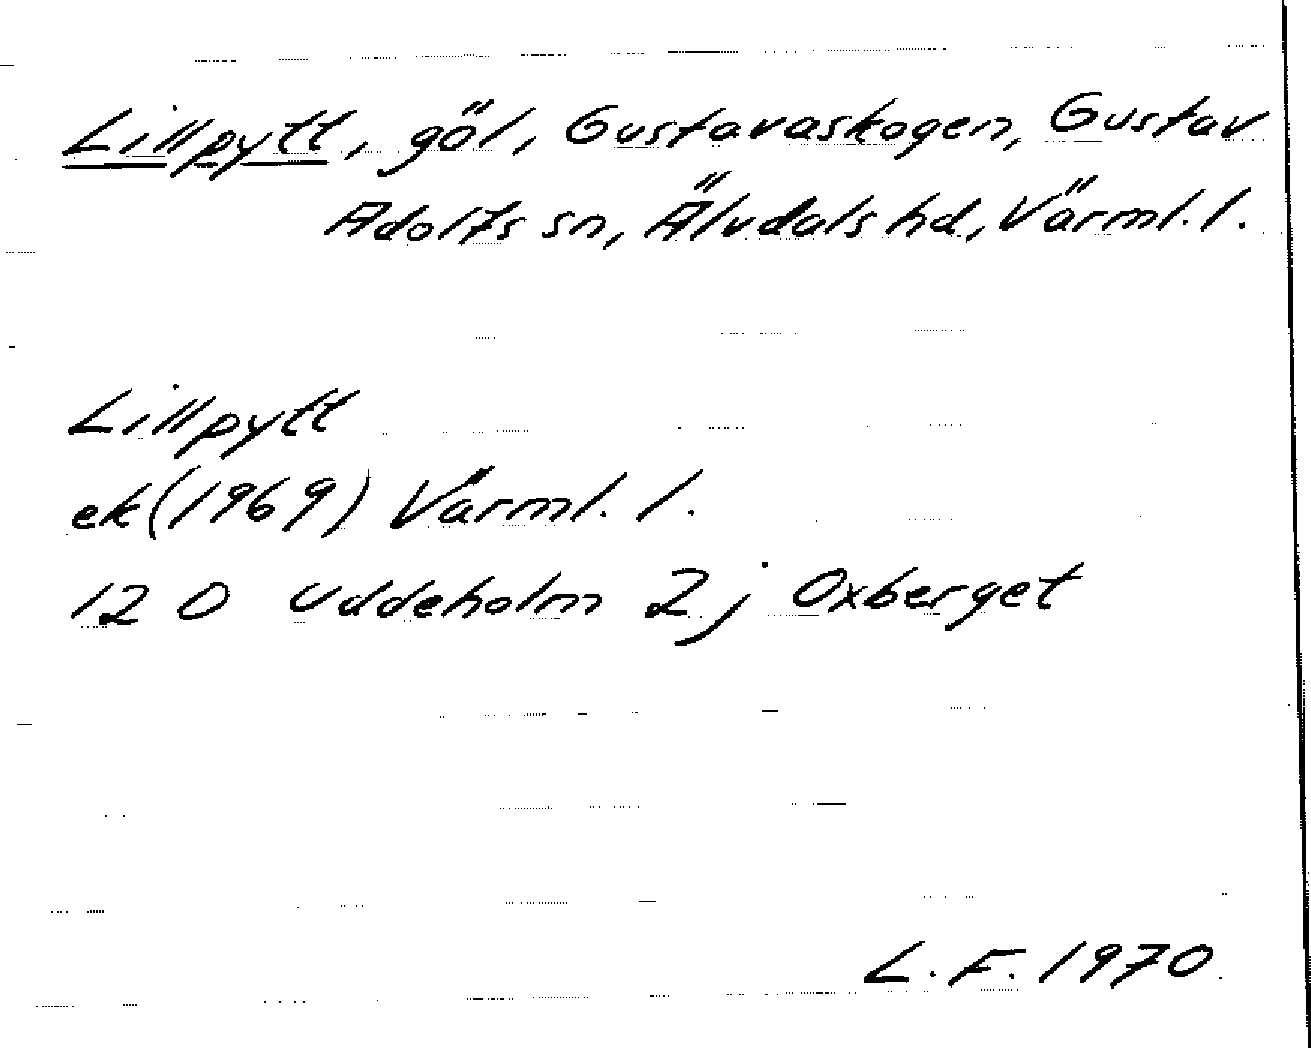 Lillpytt, göl, Gustavaskogen, Gustav
Adolfs sn, Älvdals hd, Värml. l.
Lillpytt
ek (1969) Värml. l.
12 D Uddeholm 2 j Oxberget
L. F. 1970